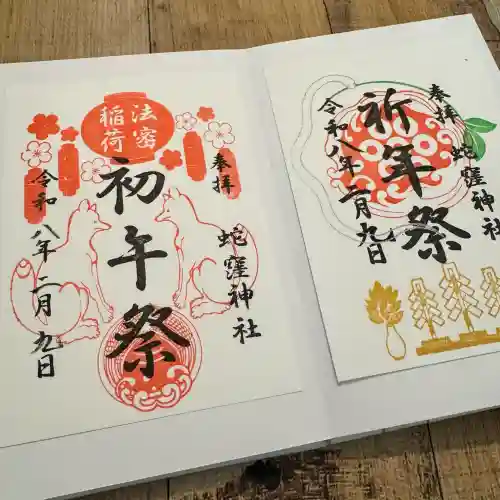 法密
稲荷
奉拝
蛇窪神社
初午祭
令和八年二月九日
奉拝
蛇窪神社
祈年祭
令和八年二月九日